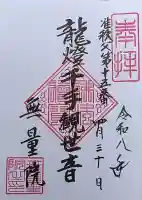 奉拝
准秩父第十五番
四月三十日
令和八年
龍燈千手観世音
無量院